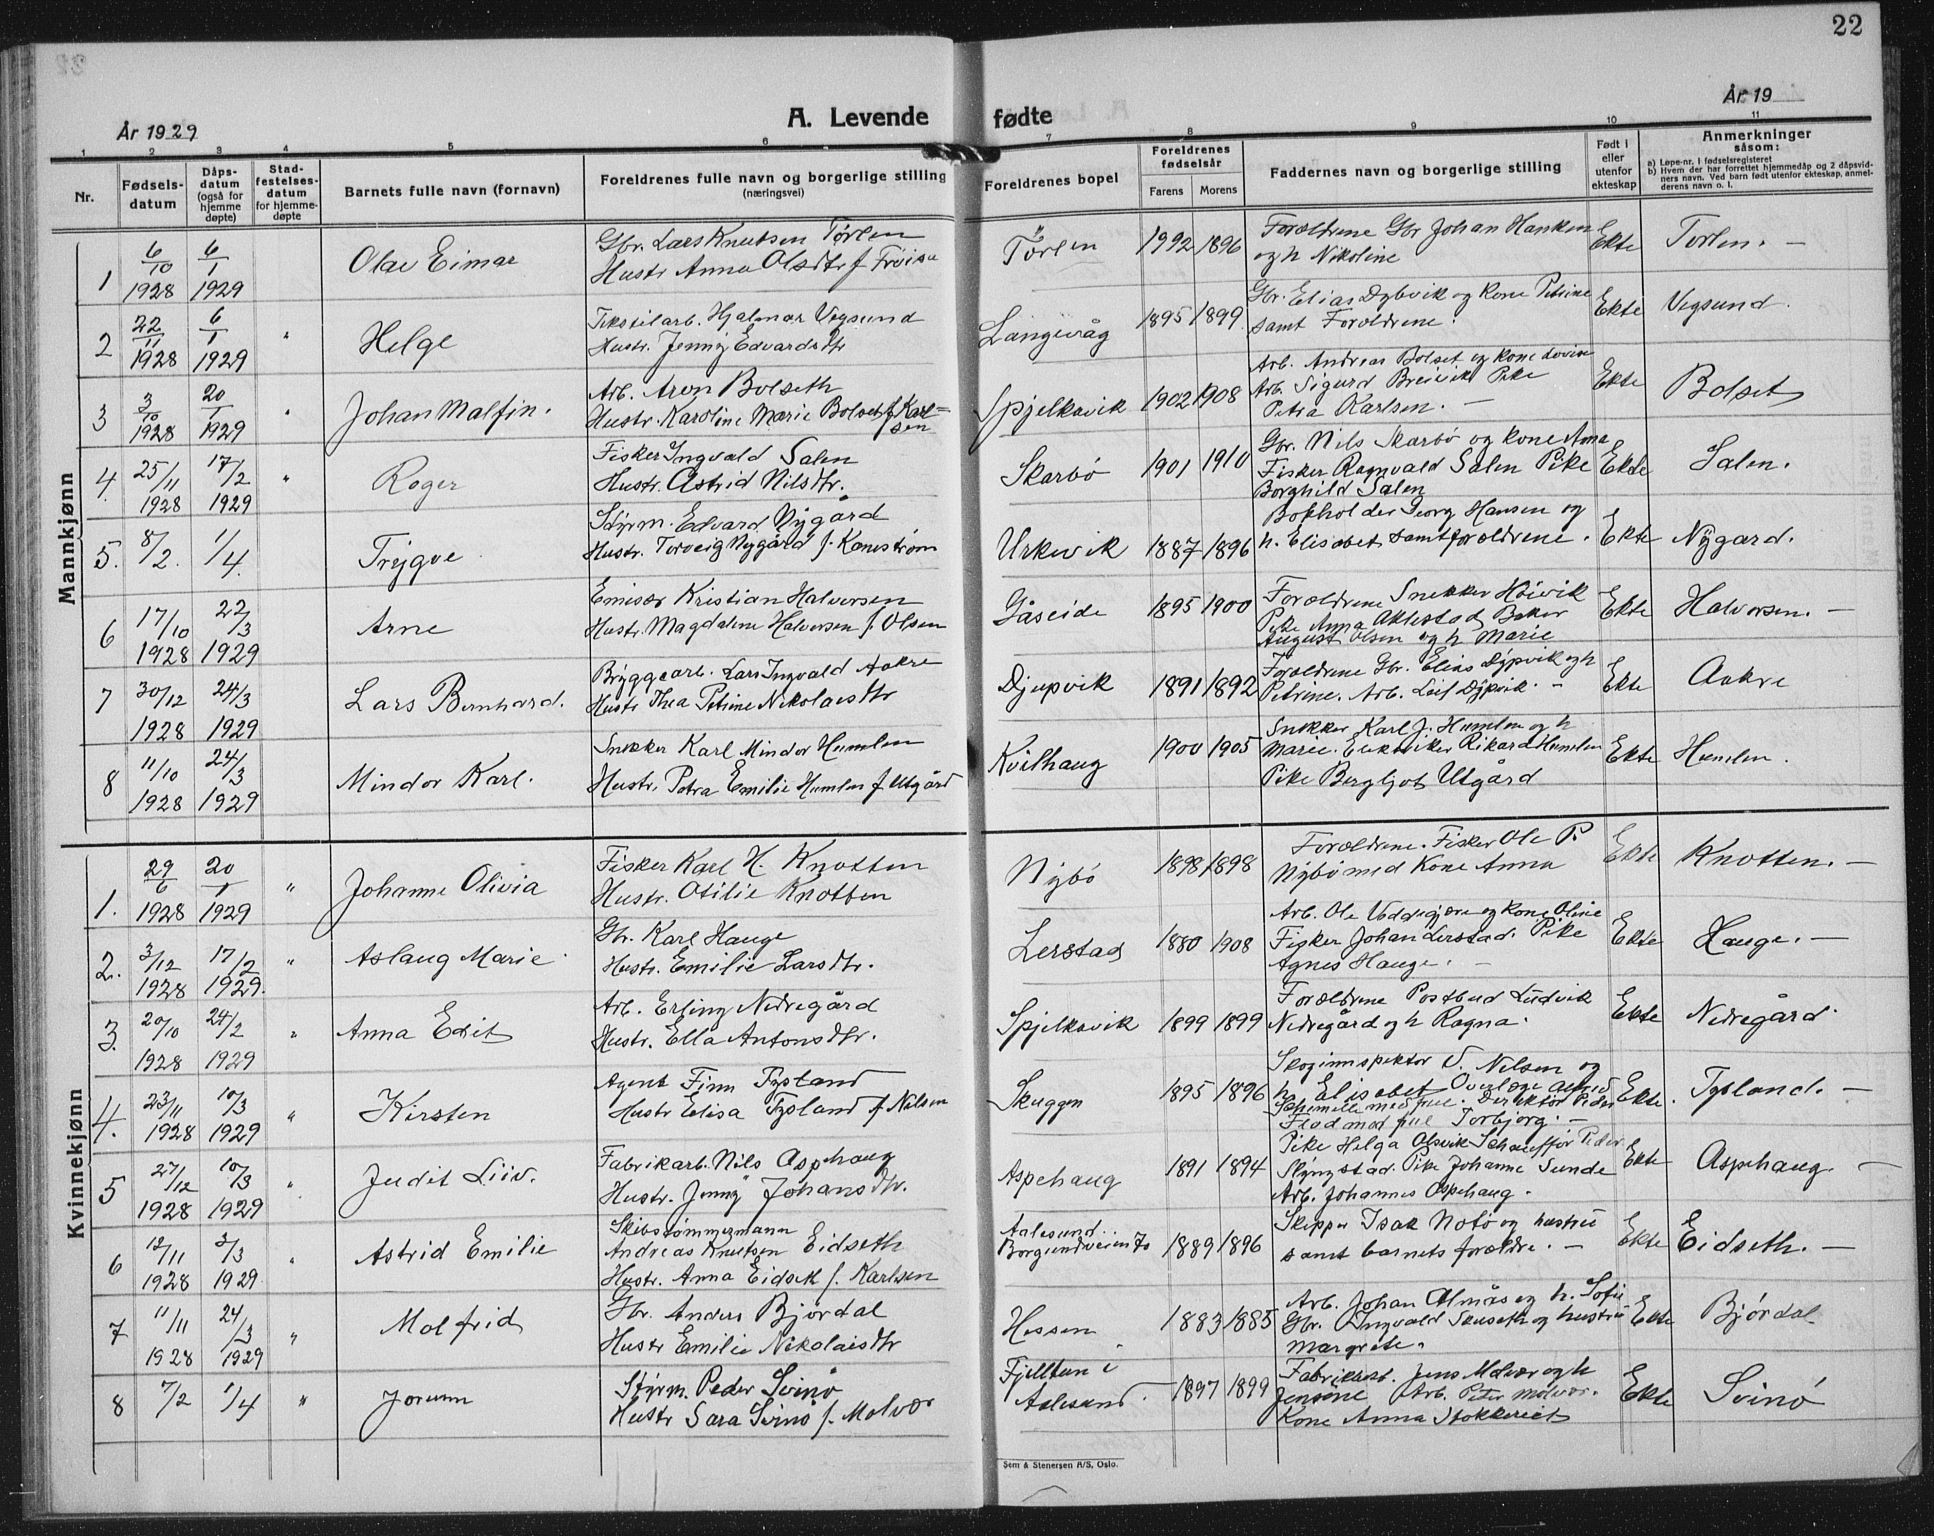 22
År 1929
A. Levende fødte
År 19
1 2 3 4 5 6 7 8 9 10 11
Nr.
Fødsels-
datum
Dåps-
datum
(også for
hjemme
døpte)
Stad-
festelses-
datum
for hjemme-
døpte
Barnets fulle navn (fornavn)
Foreldrenes fulle navn og borgerlige stilling
(næringsvei)
Foreldrenes bopel
Foreldrenes
fødselsår
Farens Morens
Faddernes navn og borgerlige stilling
Født i
eller
utenfor
ekteskap
Anmerkninger
såsom:
a) Løpe-nr. i fødselsregisteret
b) Hvem der har forrettet hjemmedåp og 2 dåpsvid-
ners navn. Ved barn født utenfor ekteskap, anmel-
derens navn o. l.
Mannkjønn
1 6/10 1928 6/1 1929 Olav Eimar
Gbr. Lars Knutsen Tørlen
Hustr Anna Olsdtr f Frøisa
Tørlen 1992 1896
Foræeldrene Gbr Johan Hanken
og h Nikoline
Ekte Torlen. —
2 22/11 1928 6/1 1929 " Helge
Tekstilarb. Hjalmar Vegsund
Hustr. Jenny Edvardsdtr
Langevåg 1895 1899
Gbr. Elias Dybvik og Kone Petrine
samt Forældrene.
Ekte Vegsund.
3 3/10 1928 20/1 1929 " Johan Malfin.
Arb. Aron Bolseth
Hustr. Karoline Marie Bolset f Karl=
sen
Spjelkavik 1902 1908
Arb. Andreas Bolset og Kone Lovise
Arb. Sigurd Breivik Pike
Petra Karlsen. —
Ekte Bolset
4. 25/11 1928 17/2 1929 " Roger
Fisker Ingvald Salen
Hustr. Astrid Nilsdtr.
Skarbø 1901 1910
Gbr. Nils Skarbø og Kone Anna
Fisker Ragnvald Salen Pike
Borghild Salen
Ekte Salen.
5. 8/2. 1/4. Trygve
Styrm. Edvard Nygård
Hustr. Torveig Nygård f. Kanestrøm
Urkevik 1887 1896
Bokholder Georg Hansen og
h. Elisabet samt forældrene.
Ekte Nygard.
6 17/10 1928 22/3 1929 Arne
Emisær Kristian Halversen
Hustr. Magdalene Halversen f. Olsen
Gåseide 1895 1900
Forældrene Snekker Høivik
Pike Anna Aklestad Baker
August Olsen og h Marie
Ekte Halvorsen. —
7 30/12 1928 24/3 1929 Lars Bernhard.
Bryggearb. Lars Ingvald Aakre
Hustr Thea Petrine Nikolaisdtr
Djupvik 1891 1892
Forældrene Gbr. Elias Dypvik og h
Petrine. Arb. Leif Dypvik. —
Ekte Aakre
8 11/10 1928 24/3 1929 Mindor Karl.
Snekker Karl Mindor Humlen
Hustr. Petra Emilie Humlen f Utgård
Kvilhaug 1900 1905
Snekker Karl J. Humlen og h
Marie. Rikard Humlen
Pike Bergljot Utgård
Ekte Humlen.
Kvinnekjønn
1. 29/6 1928 20/1 1929 " Johanne Olivia
Fisker Karl H. Knotten
Hustr. Otilie Knotten
Nybø 1898 1898
Forældrene. Fisker Ole P.
Nybø med Kone Anna
Ekte Knotten. —
2. 3/12 1928 17/2 1929. " Aslaug Marie.
Gbr. Karl Hauge
Hustr. Emilie Larsdtr.
Lerstad 1880 1908
Arb. Ole Veddegjære og Kone Oline
Fisker Johan Lerstad. Pike
Agnes Hauge. —
Ekte Hauge. —
3. 20/10 1928 24/2 1929 " Anna Edit
Arb. Erling Nedregård
Hustr. Ella Antonsdtr.
Spjelkavik 1899 1899
Forældrene Postbud Ludvik
Nedregård og h Ragna.
Ekte Nedregård.
4. 23/11 1928 10/3 1929 " Kirsten
Agent Finn Tysland
Hustr Elisa Tysland f Nilsen
Skuggen 1895 1896
Skoginnspektør V. Nilsen og
h. Elisabet Overlæge
med frue. Direktør Peder
Flod med frue Torbjørg. —
Ekte. Tysland. —
5 27/12 1928 10/3 1929 " Judit Liiv.
Fabrikarb. Nils Aspehaug
Hustr. Jenny Johansdtr.
Aspehaug 1891 1894
Pike Helga Olsvik Schauffør Peder
Slyngstad. Pike Johanne Sunde
Arb. Johannes Aspehaug.
Ekte Aspehaug. —
6 12/11 1928 3/3 1929 " Astrid Emilie
Skibstømmermann
Andreas Knutsen Eidseth
Hustr. Anna Eidseth f. Karlsen
Aalesund
Borgundveien 70 1889 1896
Skipper Isak Notø og hustru
samt barnets forældre. —
Ekte Eidseth. —
7 11/11 1928 24/3 1929 " Molfrid
Gbr. Anders Bjørdal
Hustr Emilie Nikolaisdtr
Hessen 1883 1885
Arb. Johan Almås og h. Sofie
Gbr. Ingvald Skuseth og hustru
Margrete.
Ekte Bjørdal
8 7/2 1/4 " Jorunn
Styrm. Peder Svinø
Hustr Sara Svinø f. Molvær
Fjelltun i
Aalesund. 1897 1899
Fabrikarb. Jens Molvær og h
Jensine Arb. Peter Molvær.
Kone Anna Stokkereit
Ekte Svinø
Sem & Stenersen A/S, Oslo.